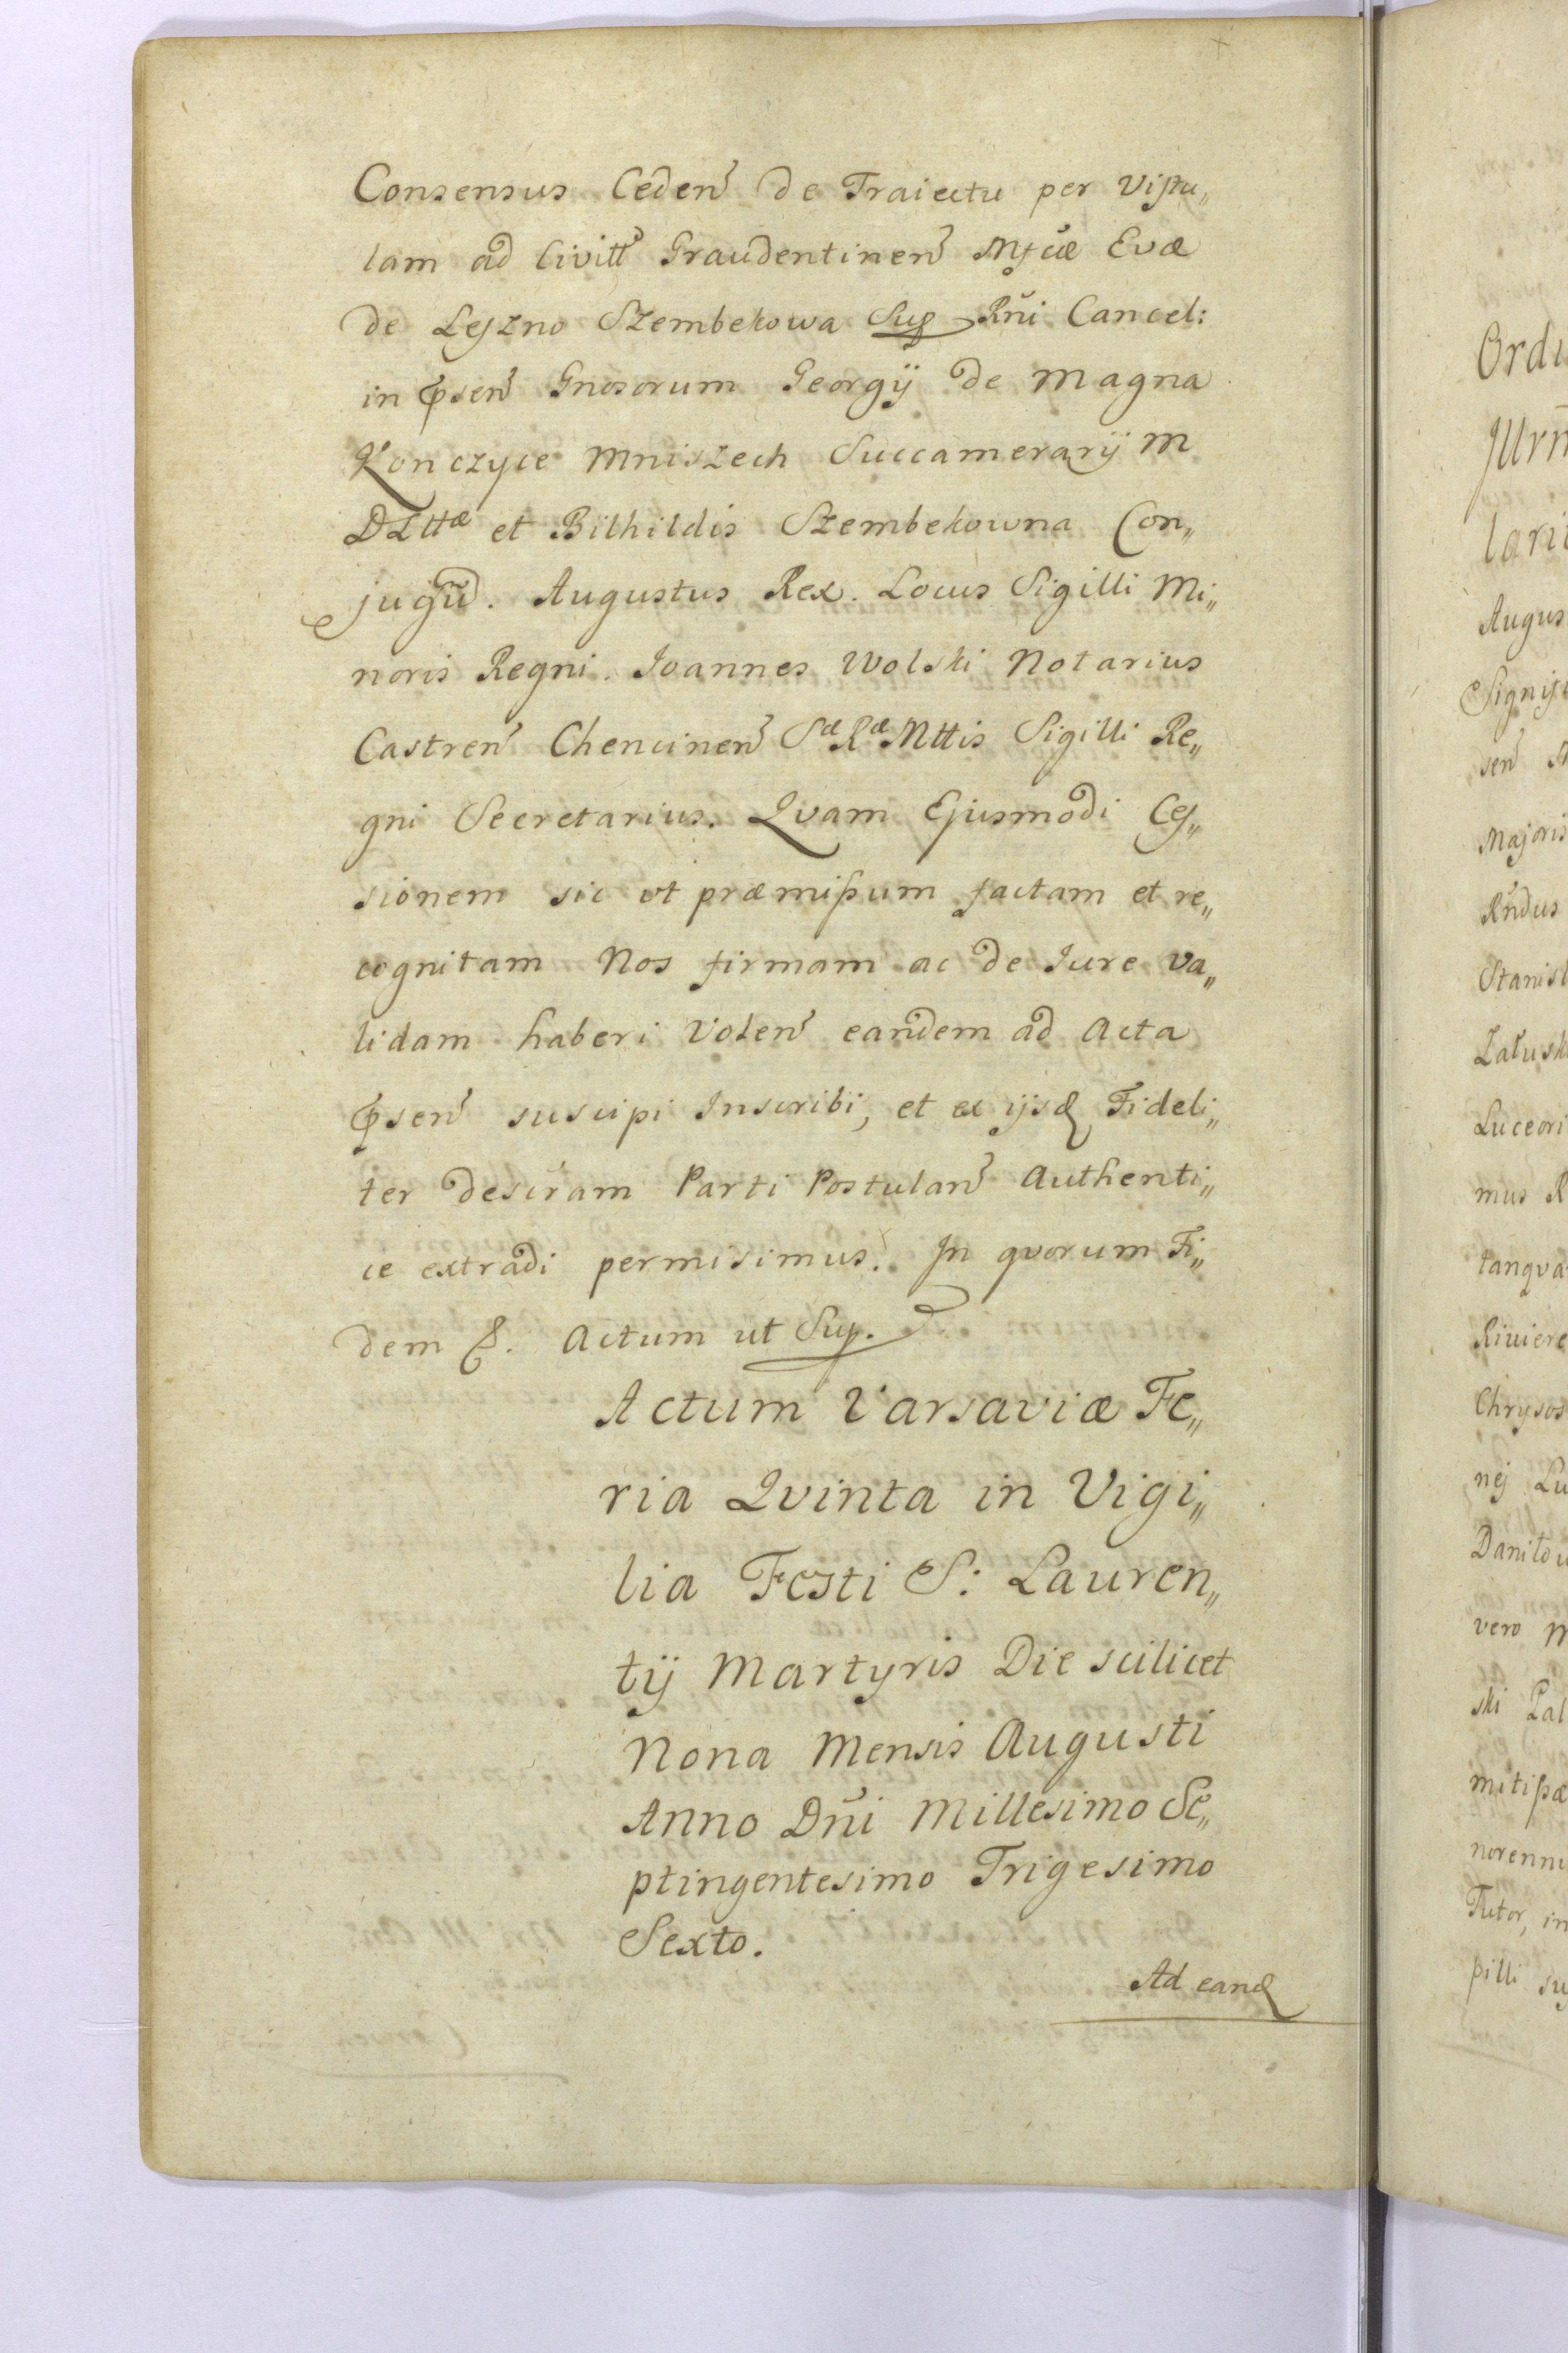 Consensus Cedeñ de Traiectu per Vistu„
lam ad Civitt Graudentineñ Mfcæ Evæ
de Leszno Szembekowa Sup Rñi Cancel:
in Pseñ Gnosorum Georgij de Magna
Konczyce Mniszech Succamerarij M
DLttæ et Bilhildis Szembekowna Con„
jugũ. Augustus Rex. Locus Sigilli Mi„
noris Regni. Joannes Wolski Notarius
Castreñ Chencineñ Sæ Ræ Mttis Sigilli Re„
gni Secretarius. Qvam Ejusmodi Ces„
sionem sic ut præmißum factam et re„
cognitam Nos firmam ac de Jure va„
lidam haberi Voleñ eandem ad Acta
Pseñ suscipi Inscribi, et ex ijsd Fideli„
ter descram Parti Postulañ Authenti„
ce extradi permisimus. In qvorum Fi„
dem &. Actum ut Sup.
Actum Varsaviæ Fe„
ria Qvinta in Vigi„
lia Festi S: Lauren„
tij Martyris Die scilicet
Nona Mensis Augusti
Anno Dñi Millesimo Se„
ptingentesimo Trigesimo
Sexto.
Ad eand
Ordi
lari
Augus
Signif
señ
Majoris
Rñdus
Stanisl
Załusk
Luceori
mus R
tanqva
Riviere
Chrysos
nej Lu
Daniło
vero M
ski Pal
mitißæ
norenni
Tutor, in
pilli su